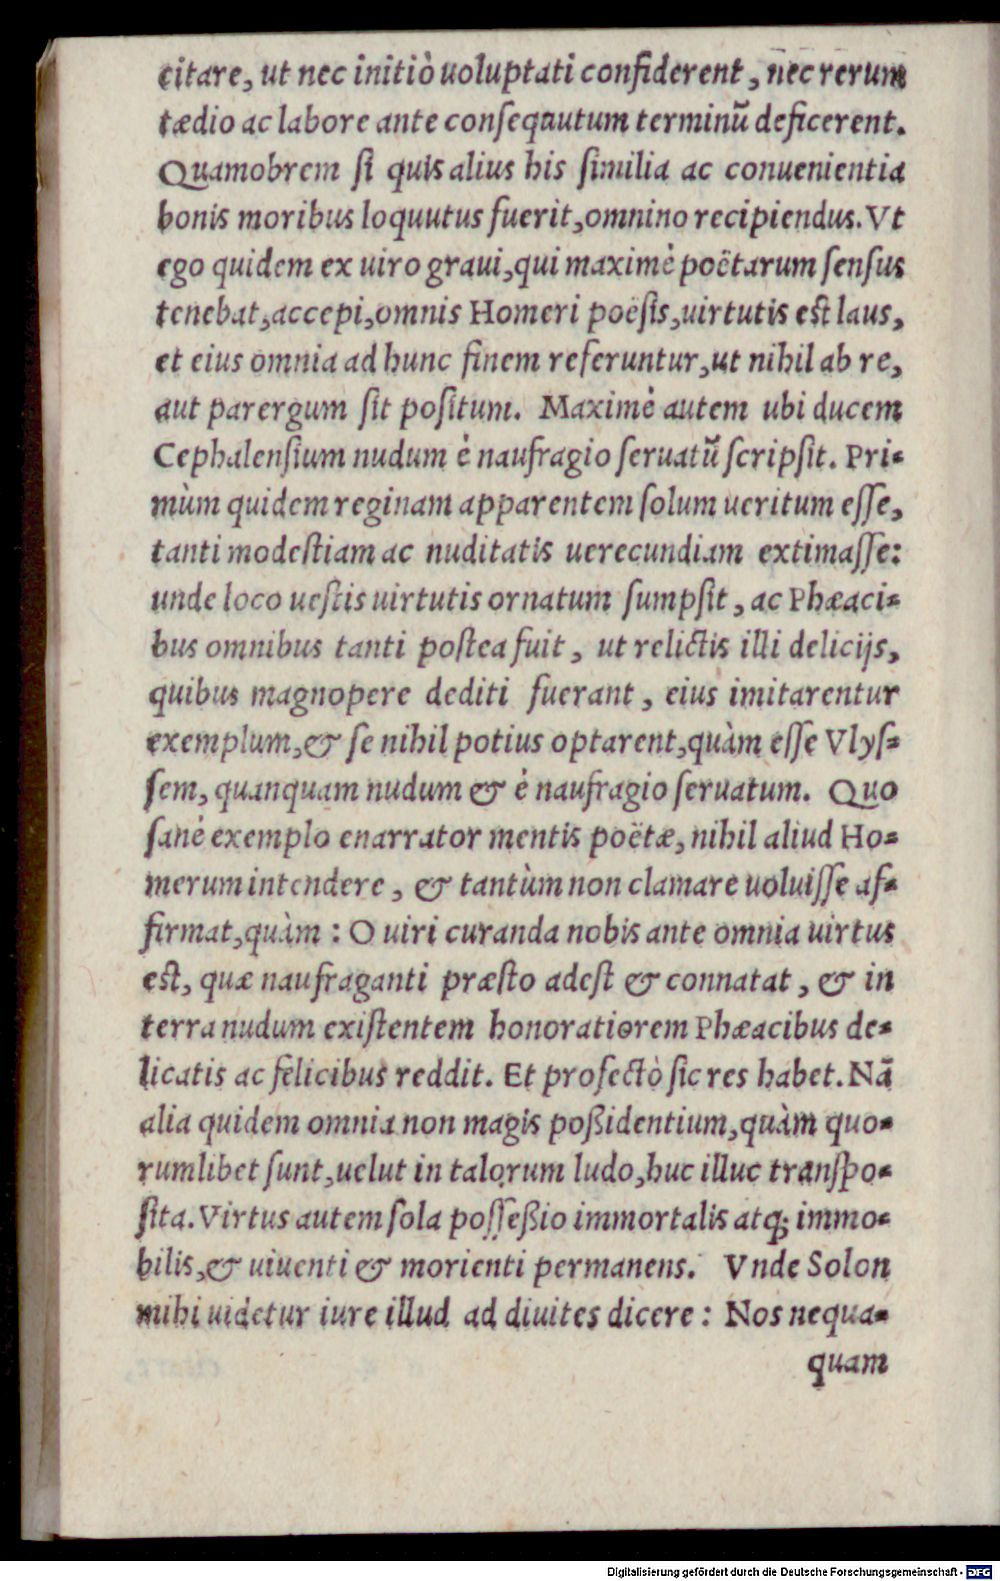 citare, ut nec initiò uoluptati confiderent, nec rerum
tædio ac labore ante consequutum terminũ deficerent.
Quamobrem si quis alius his similia ac conuenientia
bonis moribus loquutus fuerit, omnino recipiendus. Vt
ego quidem ex uiro graui, qui maximè poëtarum sensus
tenebat, accepi, omnis Homeri poësis, uirtutis est laus,
et eius omnia ad hunc finem referuntur, ut nihil ab re,
aut parergum sit positum. Maximè autem ubi ducem
Cephalensium nudum è naufragio seruatũ scripsit. Pri-
mùm quidem reginam apparentem solum ueritum esse,
tanti modestiam ac nuditatis uerecundiam extimasse:
unde loco uestis uirtutis ornatum sumpsit, ac Phæaci-
bus omnibus tanti postea fuit, ut relictis illi delicijs,
quibus magnopere dediti fuerant, eius imitarentur
exemplum, & se nihil potius optarent, quàm esse Vlys-
sem, quanquam nudum & è naufragio seruatum. Quo
sanè exemplo enarrator mentis poëtæ, nihil aliud Ho-
merum intendere, & tantùm non clamare uoluisse af-
firmat, quàm: O uiri curanda nobis ante omnia uirtus
est, quæ naufraganti præsto adest & connatat, & in
terra nudum existentem honoratiorem Phæacibus de-
licatis ac felicibus reddit. Et profectò sic res habet. Nã
alia quidem omnia non magis poßidentium, quàm quo-
rumlibet sunt, uelut in talorum ludo, huc illuc transpo-
sita. Virtus autem sola posseßio immortalis atq; immo-
bilis, & uiuenti & morienti permanens. Vnde Solon
mihi uidetur iure illud ad diuites dicere: Nos nequa-
quam
Digitalisierung gefördert durch die Deutsche Forschungsgemeinschaft - DFG